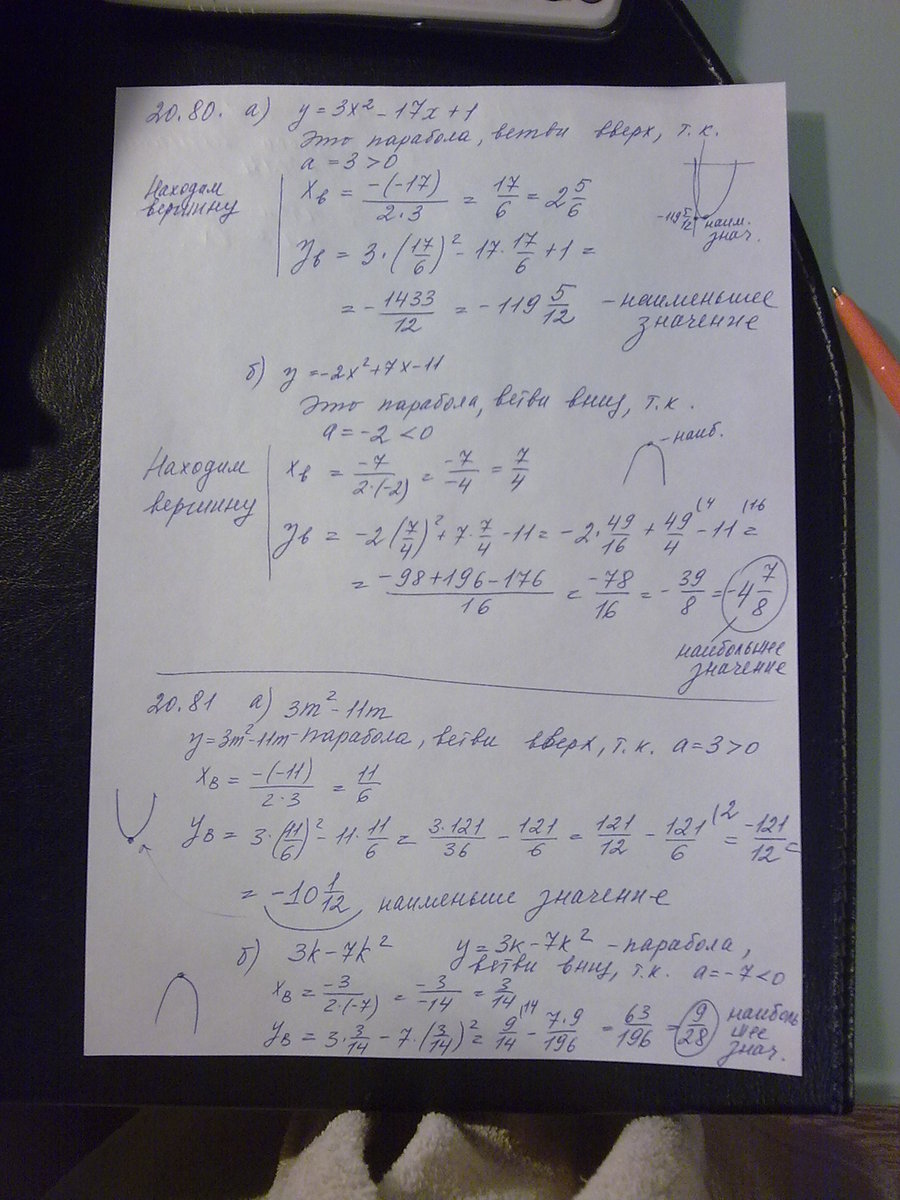 20.80. а) y = 3x² - 17x + 1
Это парабола, ветви вверх, т.к.
a = 3 > 0
Находим вершину
xв = -(-17)/2·3 = 17/6 = 2 5/6
yв = 3·(17/6)² - 17·17/6 + 1 =
= -1433/12 = -119 5/12 - наименьшее значение
-119 5/12 наим. знач.
б) y = -2x² + 7x - 11
Это парабола, ветви вниз, т.к.
a = -2 < 0
Находим вершину
xв = -7/2·(-2) = -7/-4 = 7/4
- наиб.
yв = -2(7/4)² + 7·7/4 - 11 = -2·49/16 + 49/4 (4 - 11 (16 =
= -98+196-176/16 = -78/16 = -39/8 = -4 7/8
наибольшее
значение
20.81 а) 3m² - 11m
y = 3m² - 11m - парабола, ветви вверх, т.к. a = 3 > 0
xв = -(-11)/2·3 = 11/6
yв = 3·(11/6)² - 11·11/6 = 3·121/36 - 121/6 = 121/12 - 121/6 (2 = -121/12 =
= -10 1/12 наименьше значение
б) 3k - 7k² y = 3k - 7k² - парабола,
ветви вниз, т.к. a = -7 < 0
xв = -3/2·(-7) = -3/-14 = 3/14
yв = 3·3/14 - 7·(3/14)² = 9/14 (14 - 7·9/196 = 63/196 = 9/28 наибольшее знач.